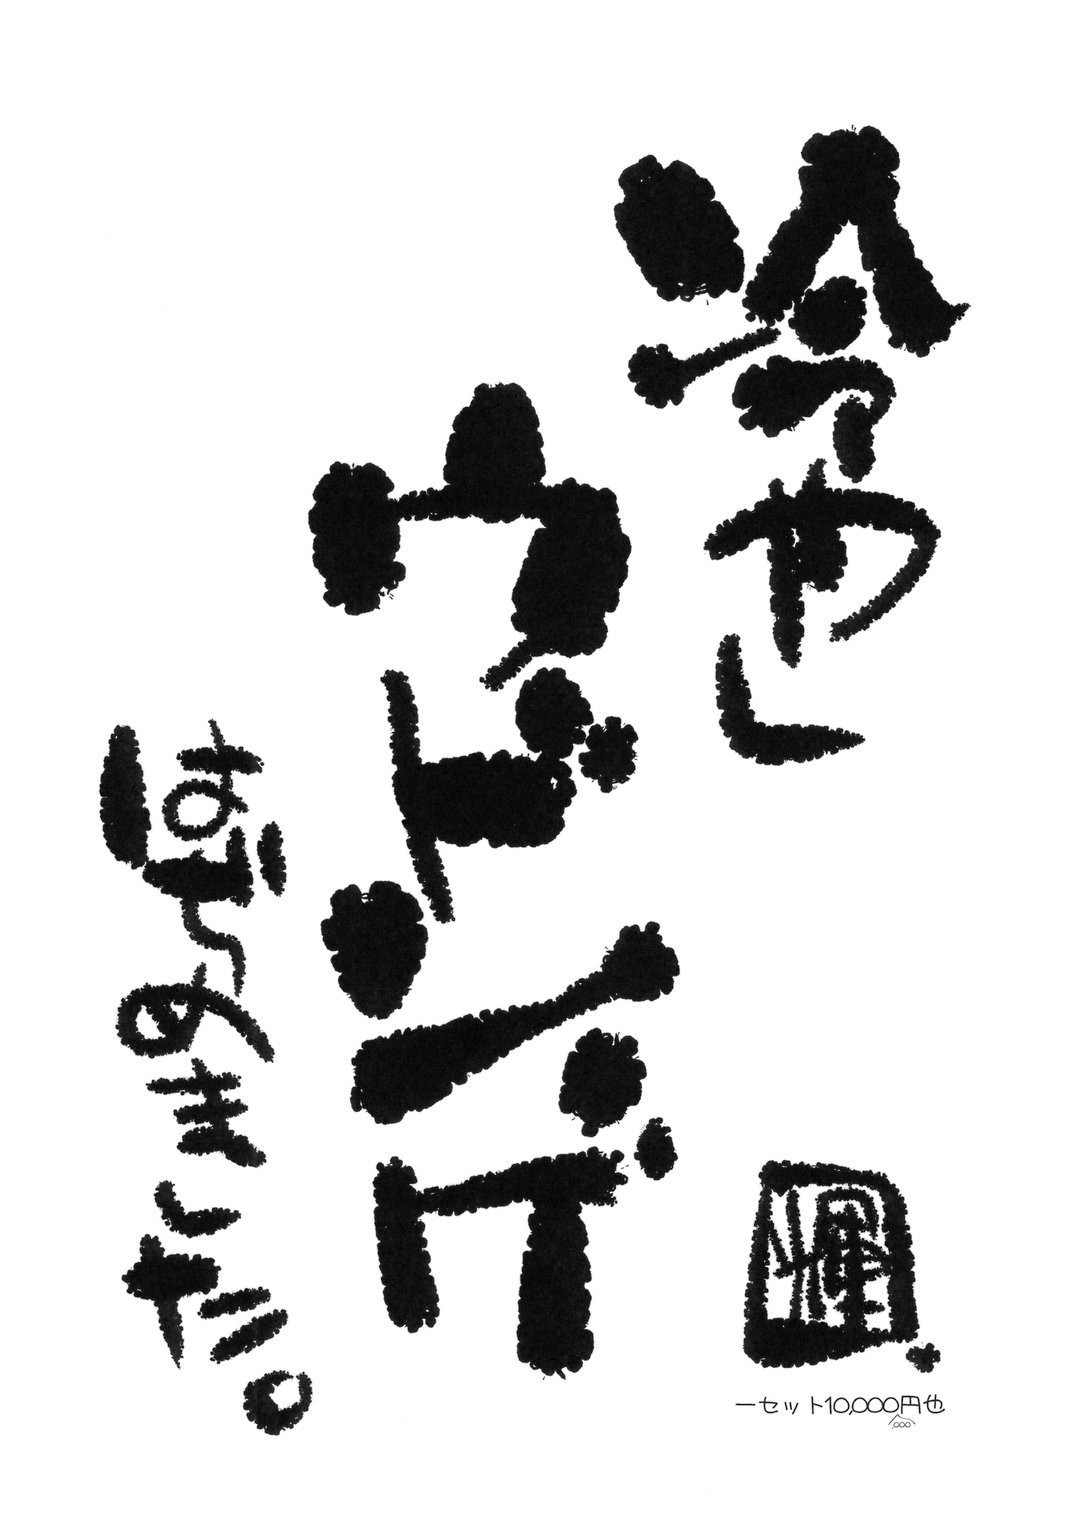 冷やし
ウドンゲ
はじめました。
一セット10,000円也
,000